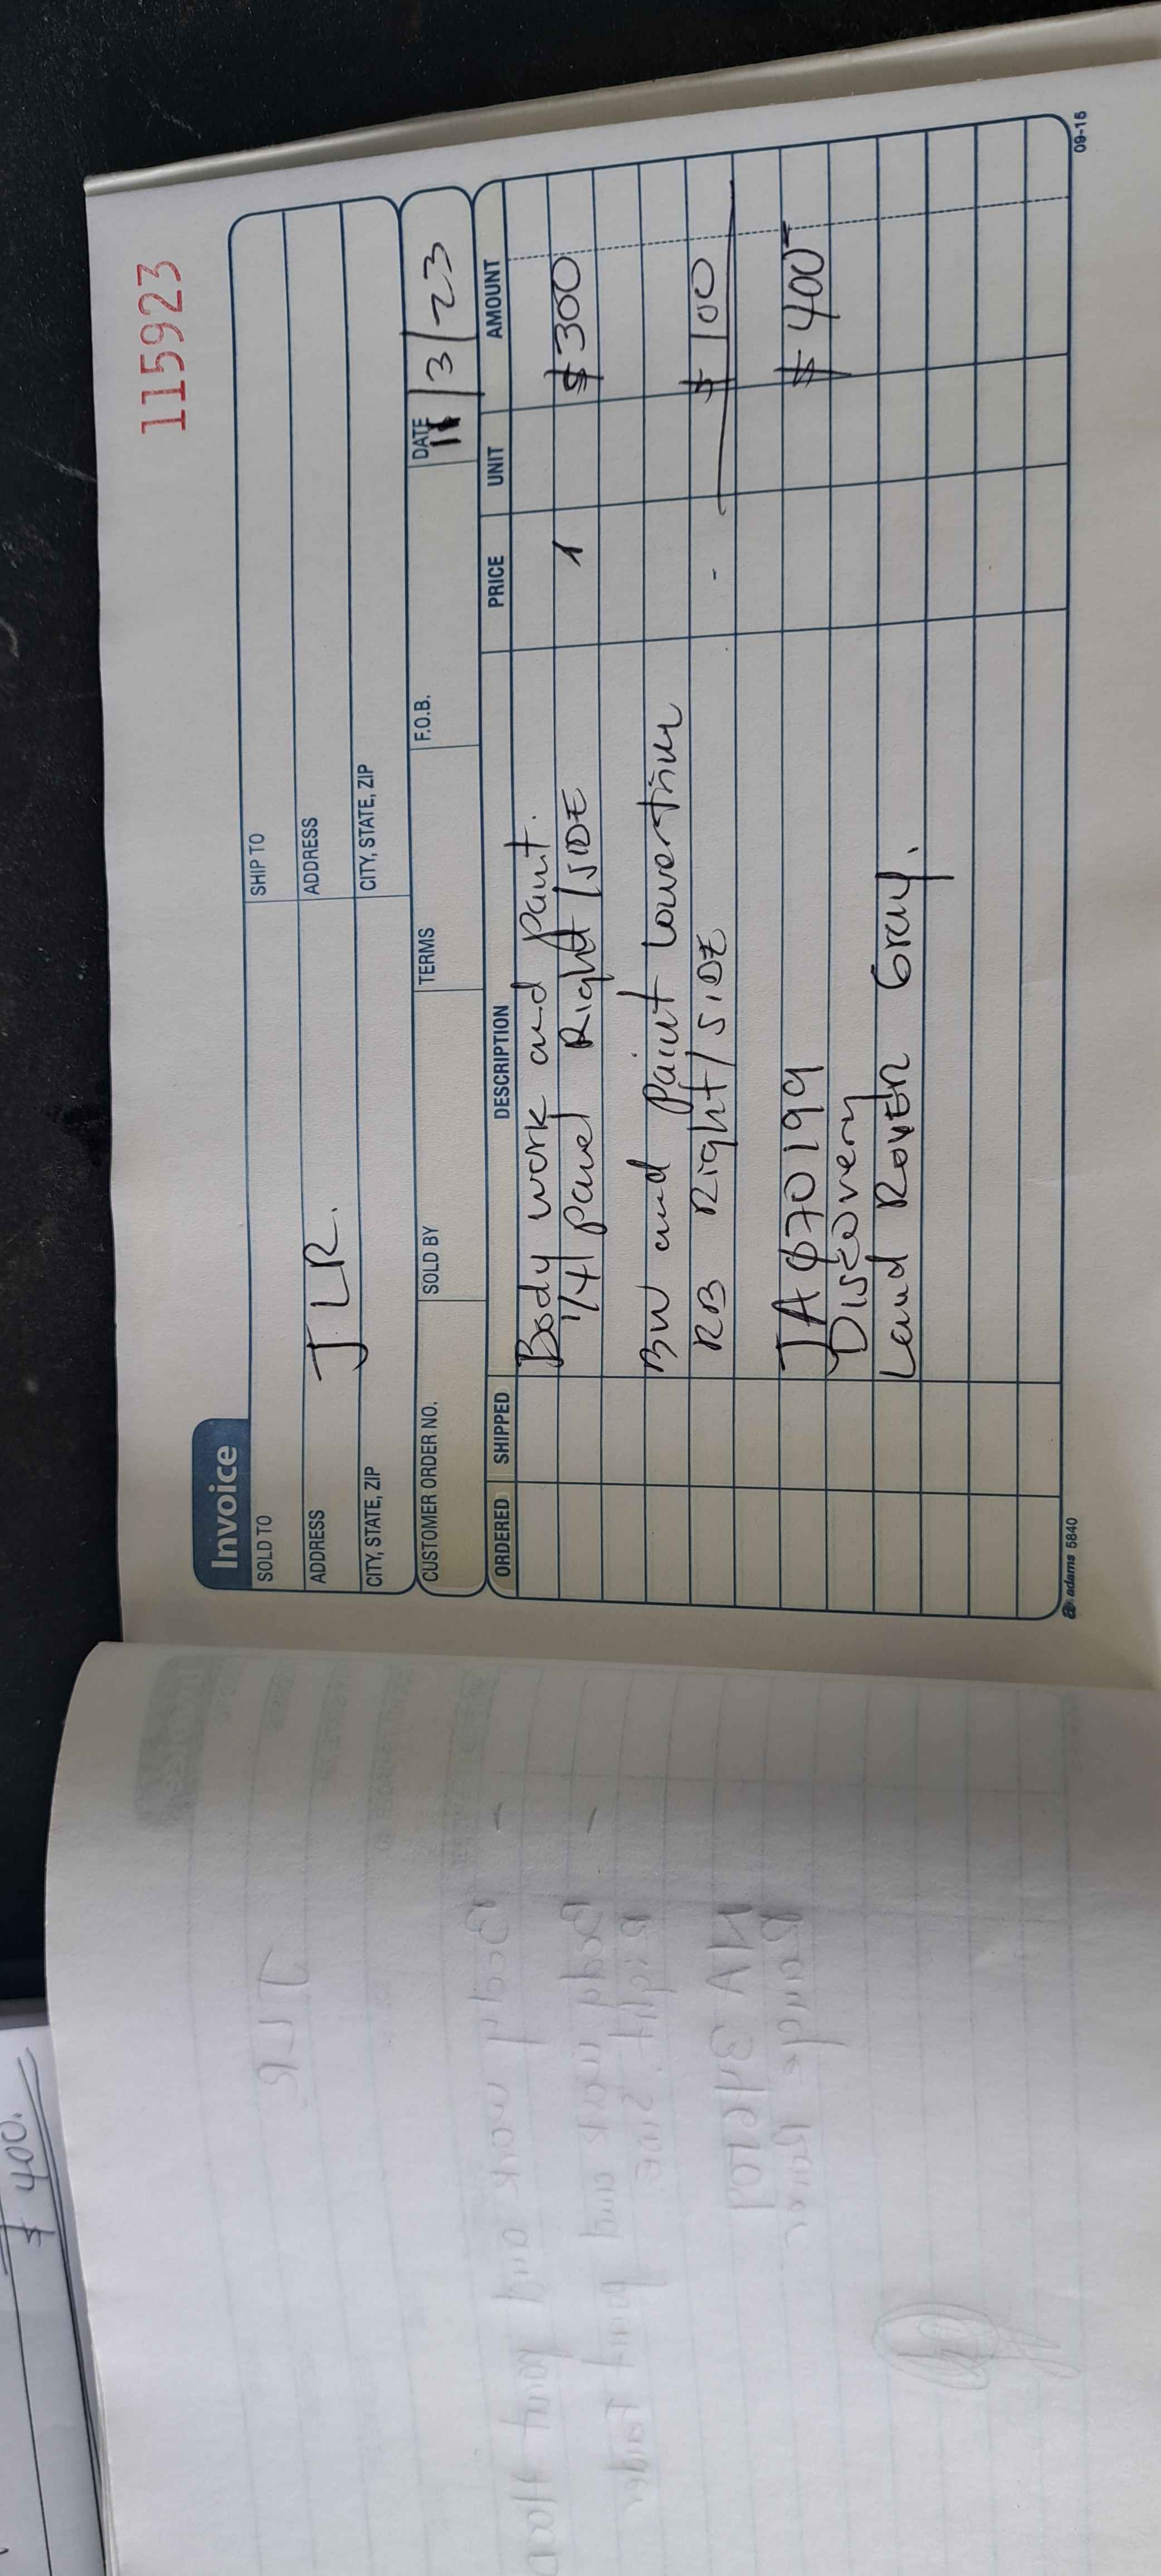 115923
Invoice
SOLD TO
SHIP TO
ADDRESS
JLR.
ADDRESS
CITY, STATE, ZIP
CITY, STATE, ZIP
CUSTOMER ORDER NO.
SOLD BY
TERMS
F.O.B.
DATE
11/3/23
ORDERED SHIPPED DESCRIPTION PRICE UNIT AMOUNT
Body work and Paint.
1/41 Panel Right/SIDE 1 $300
BW and Paint Lowertrim
RB Right/SIDE $100
JA070199 $400
Discovery
Land Rover Gray.
adams 5840
09-15
$400.